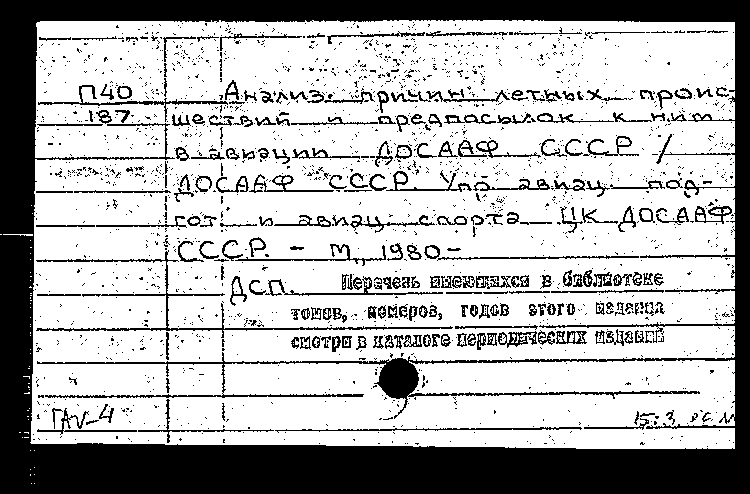 П40 Анализ причин летных проис-
187 шествий и предпосылок к ним
в авиации ДОСААФ СССР /
ДОСААФ СССР. Упр. авиац. под-
гот. и авиац. спорта ЦК ДОСААФ
СССР. - М., 1980-
ДСП. Перечень имеющихся в библиотеке
томов, номеров, годов этого издания
смотри в каталоге периодических изданий
ГАУ-4 15.3.